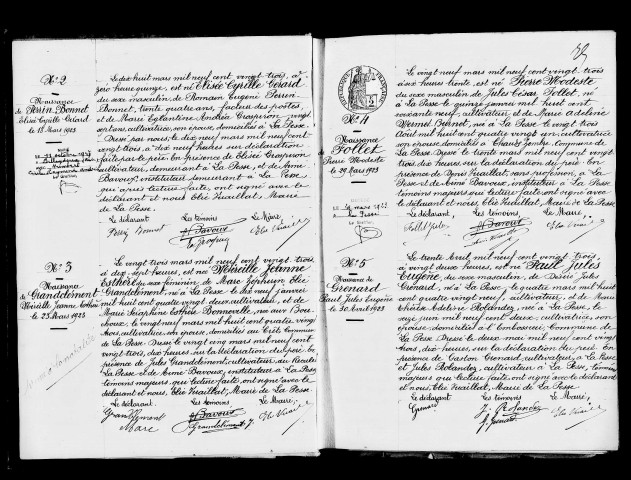 N° 2
Naissance
de Perrin Bonnet
Elisée Cyrille Gérard
le 18 Mars 1923
Le dix huit mars mil neuf cent vingt trois, à
zéro heure quinze, est né Elisée Cyrille Gérard
du sexe masculin de Romain Eugène Perrin
Bonnet, trente quatre ans, facteur des postes,
et de Marie Eglantine Andréa Grospiron, vingt
sept ans, cultivatrice, son épouse, domiciliés à La Pesse.
Dressé par nous, le dix neuf mars mil neuf cent
vingt trois, à dix neuf heures sur déclaration
faite par le père. En présence de Elisée Grospiron
cultivateur, demeurant à La Pesse, et de Aimé
Bavoux, instituteur demeurant à La Pesse,
qui après lecture faite, ont signé avec le
déclarant et nous Elie Vuaillat, Maire
de La Pesse.
Le déclarant Les témoins Le Maire,
Perrin Bonnet A. Bavoux Elie Vuaillat
N° 3
Naissance
de Grandclément
le 23 Mars 1923
Le vingt trois mars mil neuf cent vingt trois,
à dix-sept heures, est née Jeanne
Esther, du sexe féminin, de Marc Elie
Grandclément, né à La Pesse le dix neuf janvier
mil huit cent quatre vingt deux, cultivateur, et de
Marie Séraphine Esther Bonneville, née aux Bou-
choux, le vingt neuf mars mil huit cent quatre vingt
trois, cultivatrice, son épouse, domiciliés au Crêt Commune
de La Pesse. Dressé le vingt cinq mars mil neuf cent
vingt trois, dix heures, sur la déclaration du père. En
présence de Jules Grandclément, cultivateur,
La Pesse, et de Aimé Bavoux, instituteur à La Pesse
témoins majeurs, qui lecture faite, ont signé avec le
déclarant et nous, Elie Vuaillat, Maire de La Pesse.
Le déclarant Les témoins Le Maire,
Grandclément A. Bavoux Elie Vuaillat
Marc Grandclément J.
REPUBLIQUE FRANÇAISE
N° 4
Naissance
Pollet
Pierre Modeste
le 29 Mars 1923
Le vingt neuf mars mil neuf cent vingt trois
à six heures trente, est né Pierre Modeste
du sexe masculin de Jules César Pollet, né
à La Pesse le quinze janvier mil huit cent
soixante neuf, cultivateur, et de Marie Adeline
née à La Pesse le vingt trois
Août mil huit cent quatre vingt un, cultivatrice
son épouse, domiciliés à Commune
de La Pesse. Dressé le trente mars mil neuf cent vingt
trois, dix heures sur la déclaration du père. En
présence de Vuaillat, sans profession, à La
Pesse et de Aimé Bavoux, instituteur à La Pesse
témoins majeurs qui lecture faite ont signé avec
le déclarant et nous, Elie Vuaillat, Maire de La Pesse.
Le déclarant, Les témoins Le Maire,
A. Bavoux Elie Vuaillat
N° 5
Naissance de
Grenard
Paul Jules Eugène
le 30 Avril 1923
Le trente Avril, mil neuf cent vingt trois,
à vingt deux heures, est né Paul Jules
Eugène, du sexe masculin, de Désiré Jules
Grenard, né à La Pesse, le quatre mars mil huit
cent quatre vingt neuf, cultivateur, et de Marie
Adeline Rolandez, née à La Pesse, le
seize juin mil neuf cent deux, cultivatrice, son
épouse, domiciliés à l'Embossieux, Commune de
La Pesse. Dressé le deux mai mil neuf cent vingt
trois, dix heures, sur déclaration du père. En
présence de Gaston Grenard, cultivateur, à La Pesse,
et Jules Rolandez, cultivateur à La Pesse, témoins
majeurs qui lecture faite ont signé avec le déclarant
et nous, Elie Vuaillat, Maire de La Pesse.
Le déclarant Les témoins Le Maire,
Grenard J. Rolandez Elie Vuaillat
G. Grenard